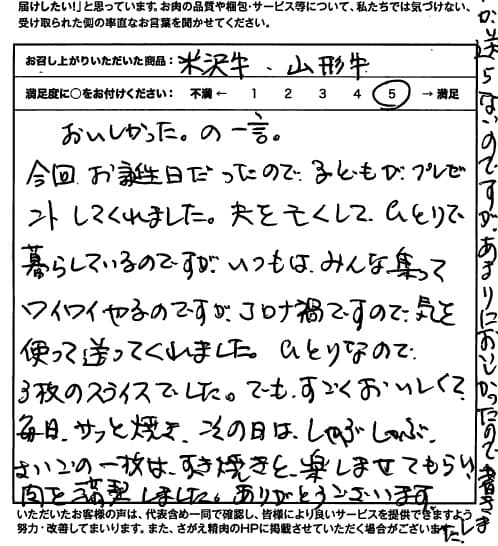 届けしたい!」と思っています。お肉の品質や梱包・サービス等について、私たちでは気づけない、
受け取られた側の率直なお言葉を聞かせてください。
お召し上がりいただいた商品: 米沢牛、山形牛
満足度に○をお付けください: 不満 ← 1 2 3 4 5 → 満足
おいしかった。の一言。
今回、お誕生日だったので、子どもが、プレゼ
ントしてくれました。夫を亡くして、ひとりで
暮らしているのですが、いつもは、みんな集って
ワイワイやるのですが、コロナ禍ですので、気を
使って送ってくれました。ひとりなので、
3枚のスライスでした。でも、すごくおいしくて、
毎日、サッと焼き、次の日は、しゃぶしゃぶ、
さいごの一枚は、すき焼きと、楽しませてもらい
肉を満喫しました。ありがとうございます。
か送らないのですが、あまりにおいしかったので書きま
した。
いただいたお客様の声は、代表含め一同で確認し、皆様により良いサービスを提供できますよう
努力・改善してまいります。また、さがえ精肉のHPに掲載させていただく場合がございます。